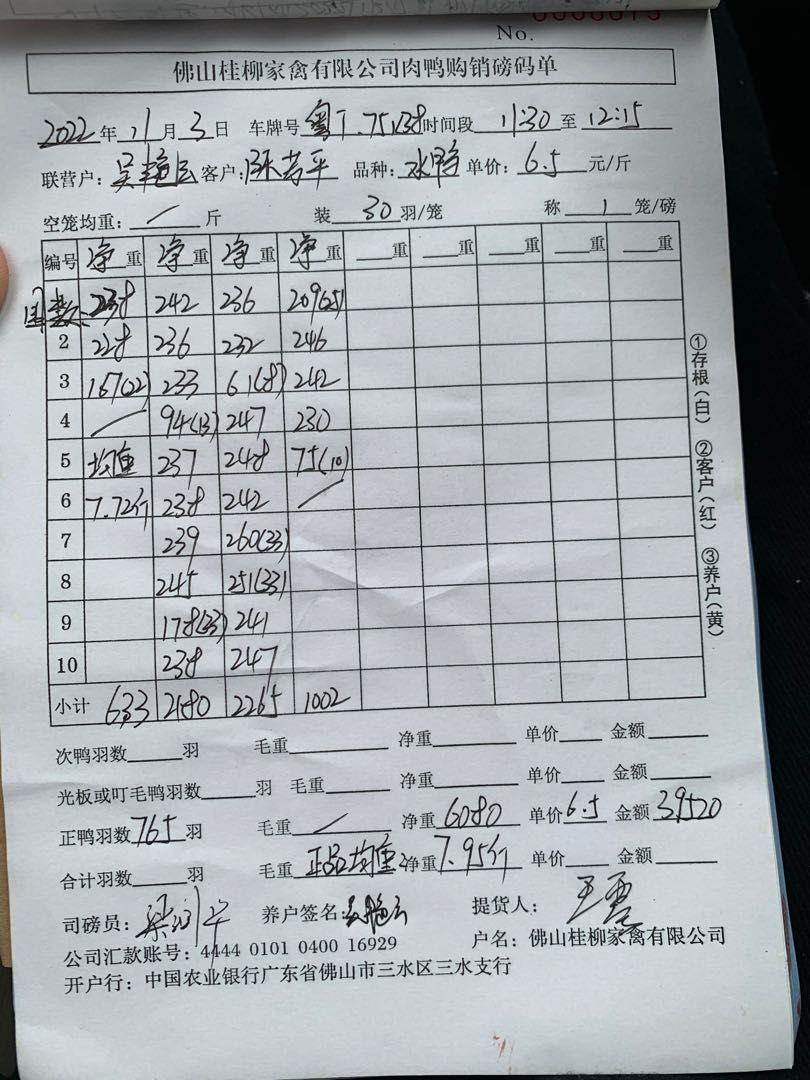 No.
佛山桂柳家禽有限公司肉鸭购销磅码单
2022年11月3日 车牌号 时间段 11:30 至 12:15
联营户: 吴艳云 客户: 陈芳平 品种: 水鸭 单价: 6.5 元/斤
空笼均重: / 斤 装 30 羽/笼 称 1 笼/磅
编号 净重 净重 净重 净重 重 重 重 重 重
238 242 236 209(25)
2 228 236 232 246
3 167(22) 233 61(8) 242
4 / 94(13) 247 230
5 均重 237 248 75(10)
6 7.72斤 238 242 /
7 239 260(33)
8 245 251(33)
9 178(23) 241
10 238 247
小计 633 2180 2265 1002
次鸭羽数 羽 毛重 净重 单价 金额
光板或叮毛鸭羽数 羽 毛重 净重 单价 金额
正鸭羽数 765 羽 毛重 / 净重 6080 单价 6.5 金额 39520
合计羽数 羽 毛重 正品均重: 净重 7.95斤 单价 金额
司磅员: 养户签名: 提货人:
公司汇款账号: 4444 0101 0400 16929 户名: 佛山桂柳家禽有限公司
开户行: 中国农业银行广东省佛山市三水区三水支行
①存根(白) ②客户(红) ③养户(黄)